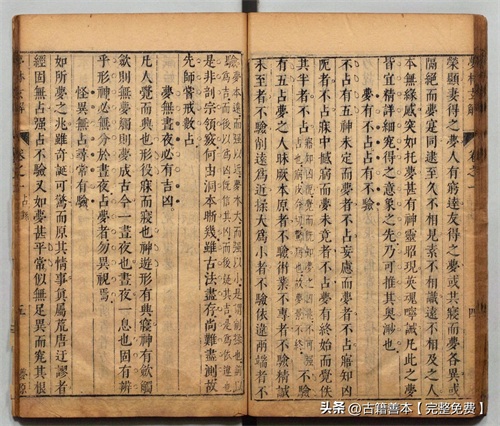 夢林玄解
卷之一
四
榮顯妻得之夢人有窮達友得之夢或其夢各異或
隔絕而夢寔同逮至久不相見素不相識遠不相及之人
本無緣感突如托夢甚有神靈昭現英魂嘷誡凡此之夢
皆宜精詳細究得之意象之先乃可推其奧渺也
夢有不占占有不驗
不占有五神未定而夢者不占妄慮而夢者不占寤知凶
阨者不占寐中撼病而夢未竟者不占夢有終始而覺佚
其半者不占
占有五不驗占夢之人昧厥本原者不驗術業不專者不驗精誠
未至者不驗削遠為近揉大為小者不驗依違兩端者不
驗
是非訓宗領亥何由洞本晰幾雖古法盡存尚難盡測故
先師嘗戒數占
夢無晝夜必有吉凶
凡人覺而興也形役寐而寢也神遊形有興寢神有歛觸
歛則無夢觸則夢成古今一晝夜也夢覺一息也固有辨
乎形神必無分於晝夜占夢者勿異視焉
怪異無占尋常有驗
如所夢之兆雖奇誕可驚而原其情事實屬荒唐迂謬者
經固無占強占不驗又如夢甚平常似無足異而究其根
夢林玄解
卷之一
五
头条 @古籍善本【完整免费】